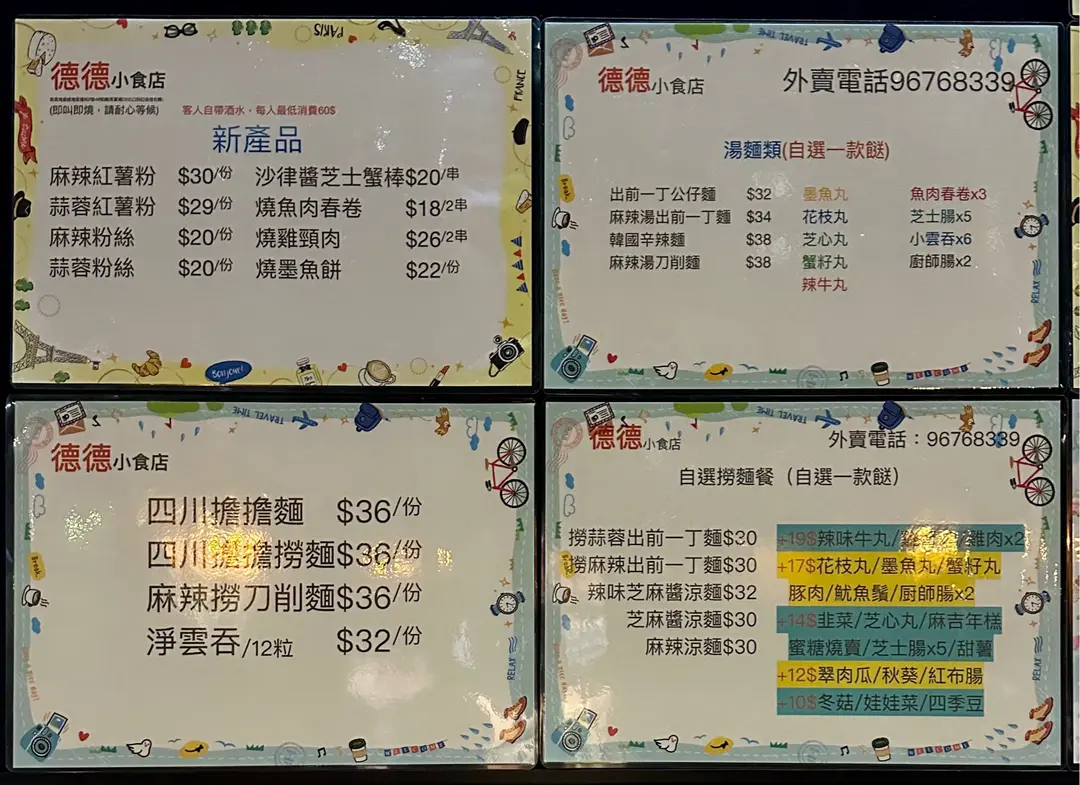 德德小食店
(即叫即燒,請耐心等候) 客人自帶酒水,每人最低消費60$
新產品
麻辣紅薯粉 $30/份 沙律醬芝士蟹棒$20/串
蒜蓉紅薯粉 $29/份 燒魚肉春卷 $18/2串
麻辣粉絲 $20/份 燒雞頸肉 $26/2串
蒜蓉粉絲 $20/份 燒墨魚餅 $22/份
PARIS
FRANCE
Bonjour!
德德小食店 外賣電話96768339
湯麵類(自選一款餸)
出前一丁公仔麵 $32 墨魚丸 魚肉春卷x3
麻辣湯出前一丁麵 $34 花枝丸 芝士腸x5
韓國辛辣麵 $38 芝心丸 小雲吞x6
麻辣湯刀削麵 $38 蟹籽丸 廚師腸x2
辣牛丸
TRAVEL TIME
Break
RELAX
WELCOME
德德小食店
四川擔擔麵 $36/份
四川擔擔撈麵$36/份
麻辣撈刀削麵$36/份
淨雲吞/12粒 $32/份
TRAVEL TIME
Break
RELAX
WELCOME
德德小食店 外賣電話:96768339
自選撈麵餐(自選一款餸)
撈蒜蓉出前一丁麵$30 +19$辣味牛丸/ /雞肉x2
撈麻辣出前一丁麵$30 +17$花枝丸/墨魚丸/蟹籽丸
辣味芝麻醬涼麵$32 豚肉/魷魚鬚/廚師腸x2
芝麻醬涼麵$30 +14$韭菜/芝心丸/麻吉年糕
麻辣涼麵$30 蜜糖燒賣/芝士腸x5/甜薯
+12$翠肉瓜/秋葵/紅布腸
+10$冬菇/娃娃菜/四季豆
TRAVEL TIME
Break
RELAX
WELCOME